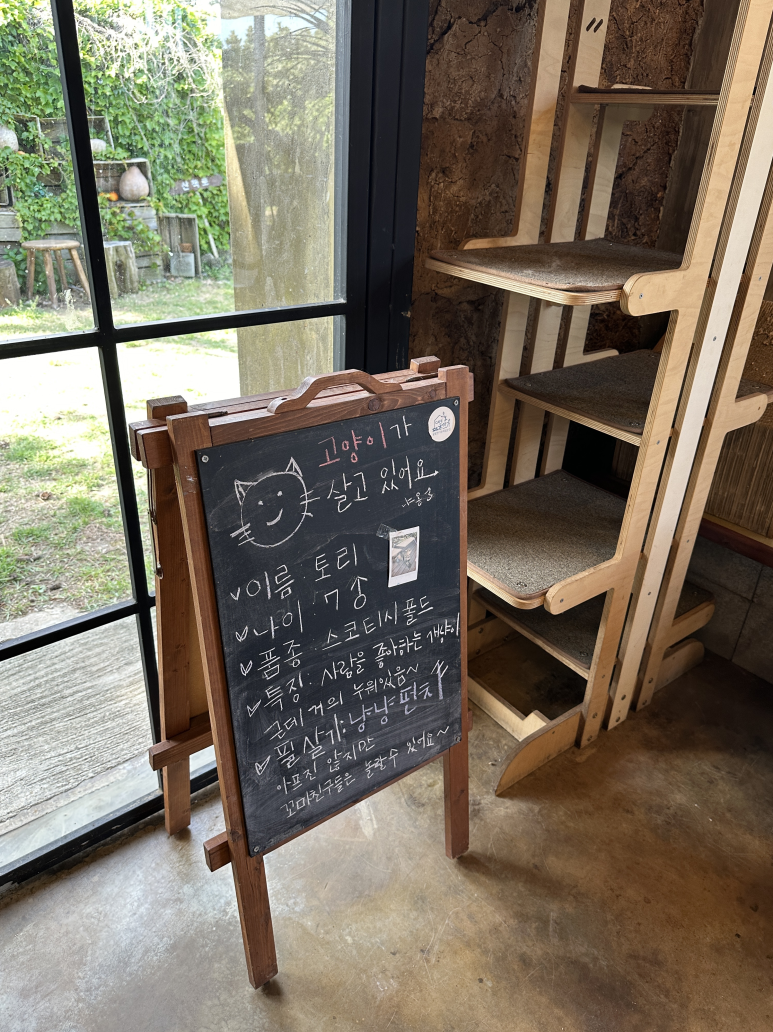 고양이가
살고 있어요
이름 : 토리
나이 : 7살
품종 : 스코티시폴드
특징 : 사람을 좋아하는 개냥이
근데 거의 누워있음~
필살기 : 냥냥펀치
아프진 않지만
꼬마친구들은 놀랄 수 있어요~